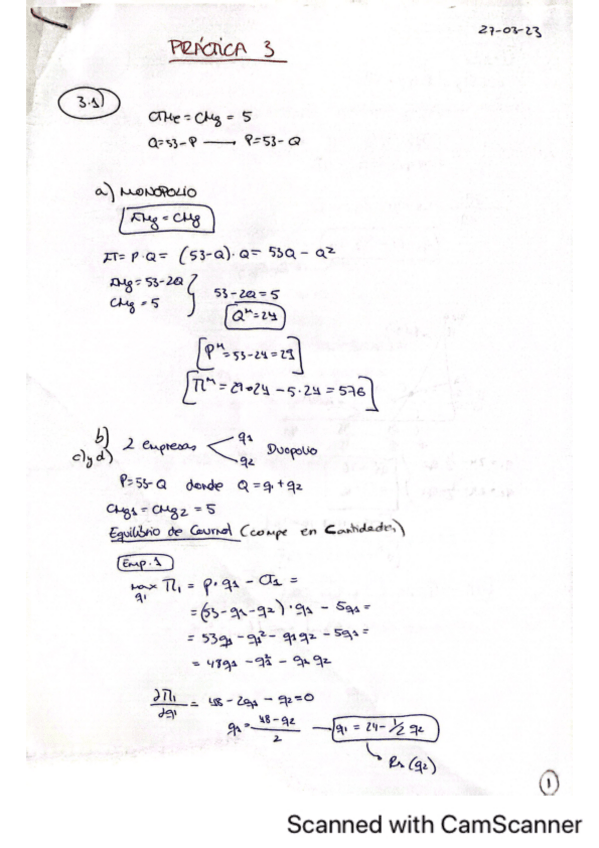 27-03-23
PRÁCTICA 3
3.1)
CTMe = CMg = 5
Q=53-P → P=53-Q
a) MONOPOLIO
IMg = CMg
IT= P·Q = (53-Q)·Q = 53Q - Q²
IMg = 53-2Q
CMg = 5
53-2Q=5
Qᴹ=24
[Pᴹ=53-24=29]
[Πᴹ=29·24 - 5·24 = 576]
b)
c) y d)
2 empresas
q1
q2
Duopolio
P=53-Q donde Q=q1+q2
CMg1 = CMg2 = 5
Equilibrio de Cournot (compe en Cantidades)
Emp. 1
max Π1 = P·q1 - CT1 =
q1
= (53-q1-q2)·q1 - 5q1 =
= 53q1 - q1² - q1q2 - 5q1 =
= 48q1 - q1² - q1q2
∂Π1/∂q1 = 48 - 2q1 - q2=0
q1 = 48-q2/2 → q1 = 24 - 1/2 q2
R1 (q2)
1
Scanned with CamScanner